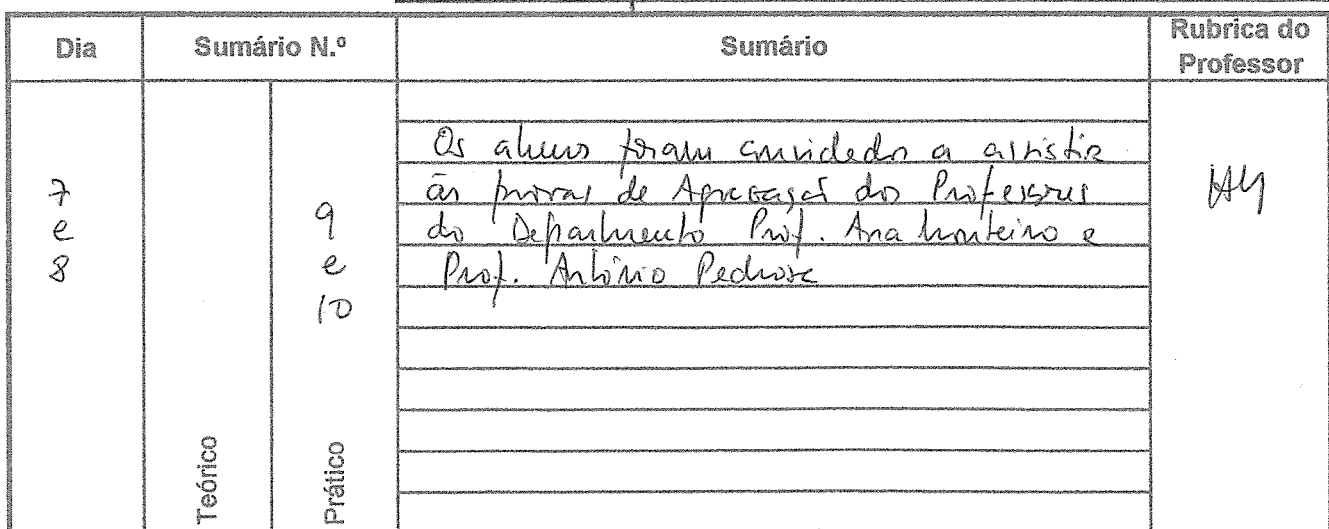 Dia Sumário N.º Sumário Rubrica do Professor
7 e 8
9 e 10
Os alunos foram convidados a assistir
às provas de Agregação dos Professores
do Departamento Prof. Ana Monteiro e
Prof. António Pedrosa
Teórico
Prático